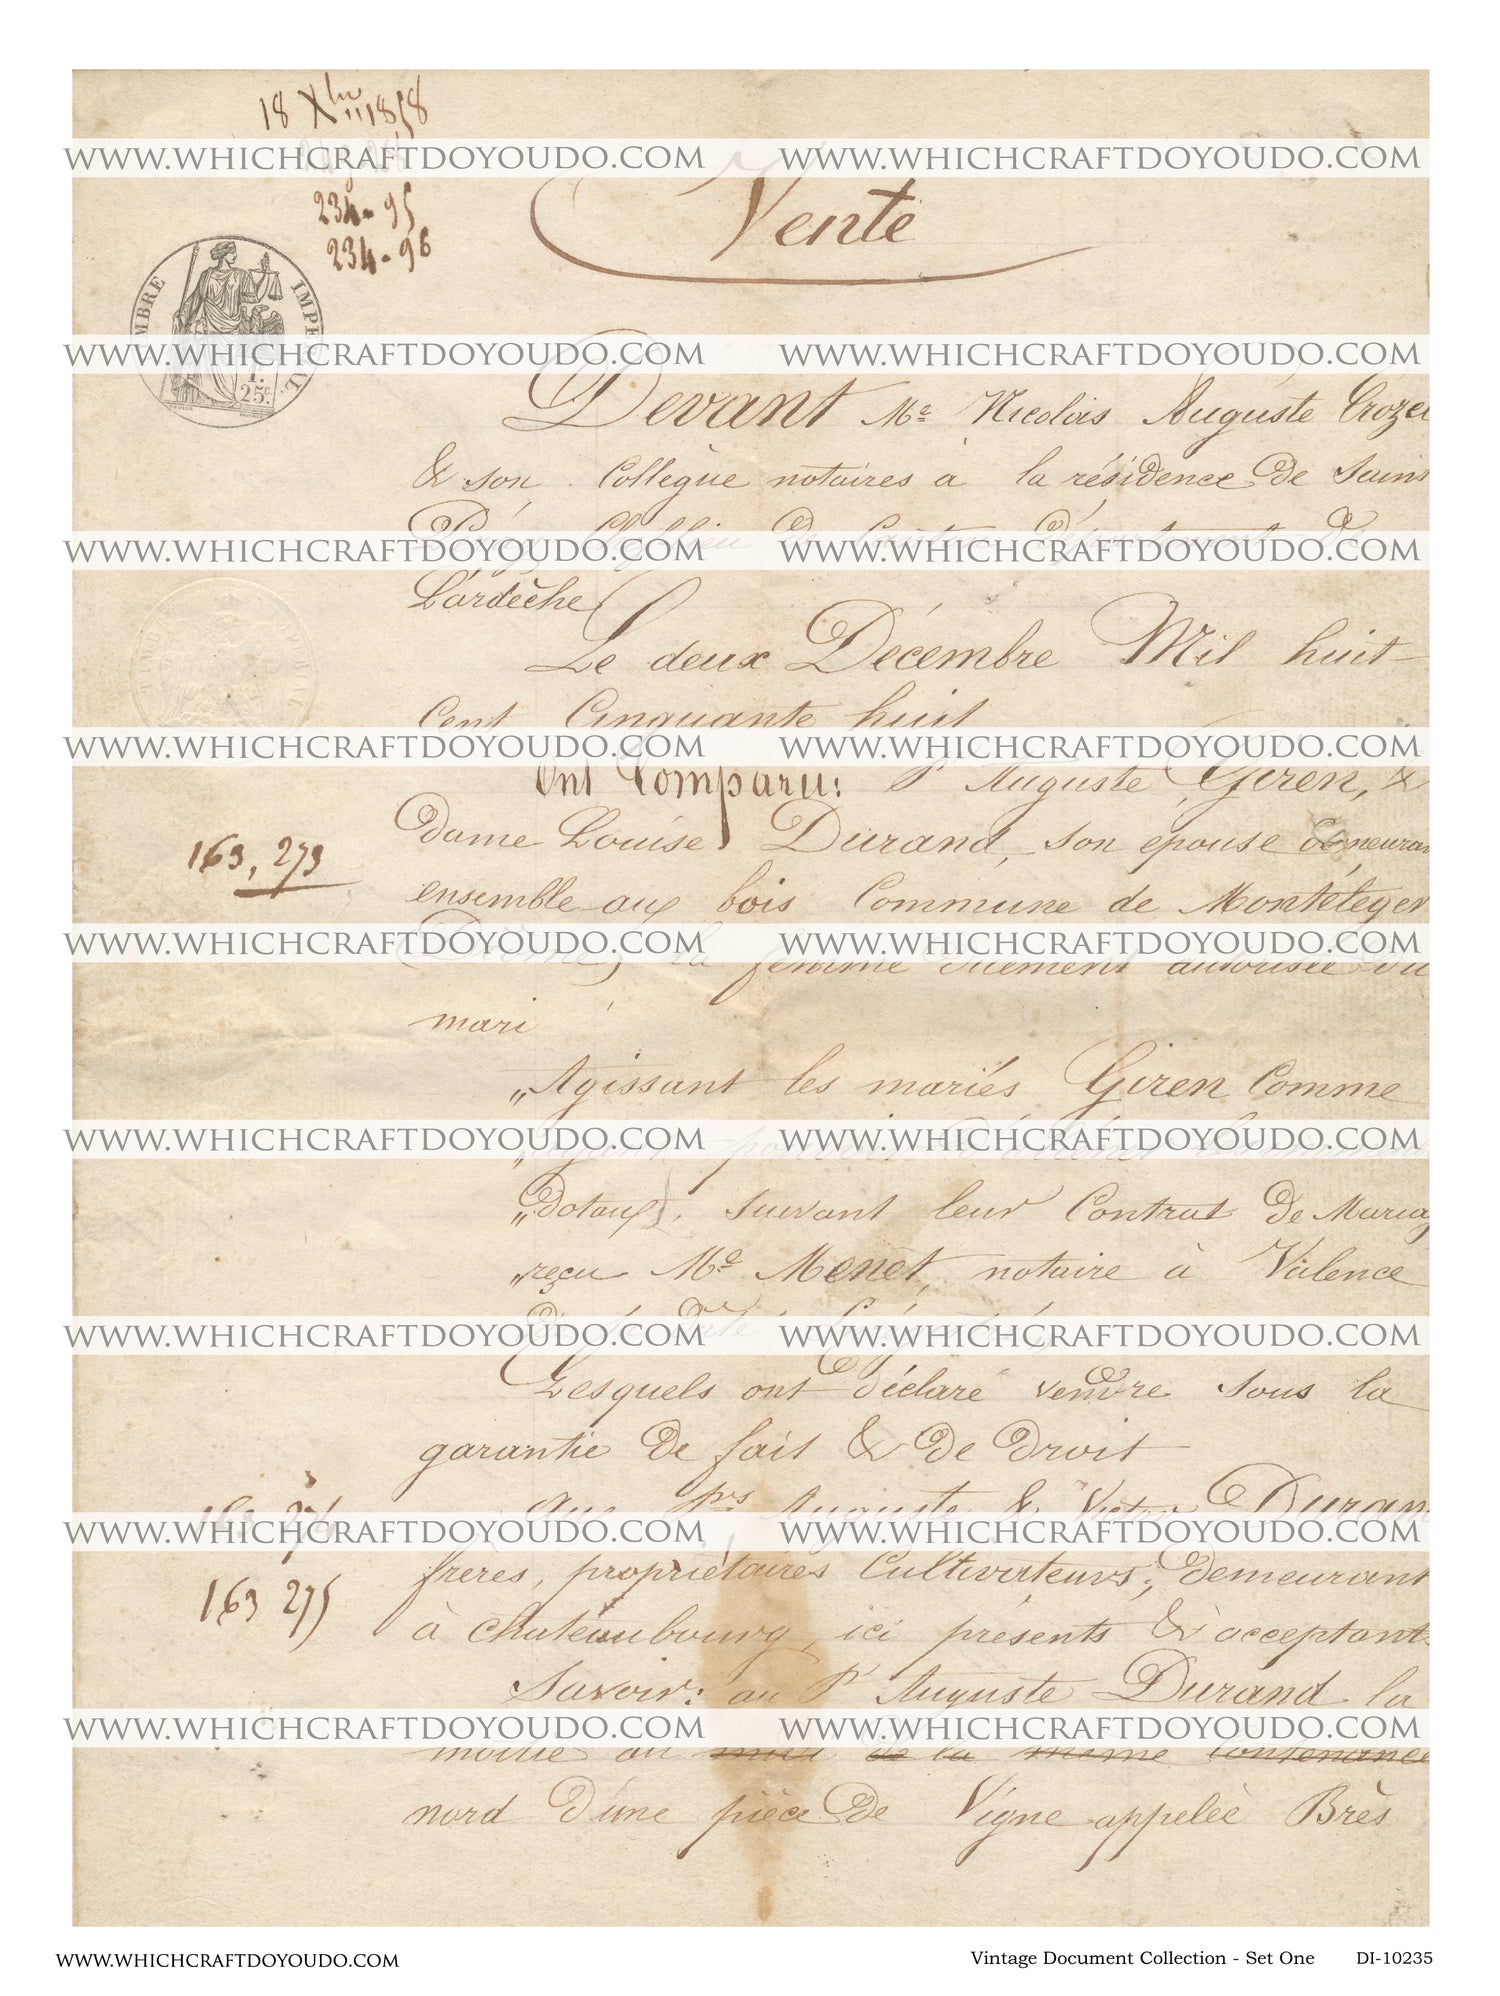 18 Xbre 1858
WWW.WHICHCRAFTDOYOUDO.COM WWW.WHICHCRAFTDOYOUDO.COM
234-95
234-96
Vente
TIMBRE IMPERIAL
1f. 25c.
WWW.WHICHCRAFTDOYOUDO.COM WWW.WHICHCRAFTDOYOUDO.COM
Devant Me Nicolas Auguste Crozet
& son Collègue notaires à la résidence de Saint
WWW.WHICHCRAFTDOYOUDO.COM WWW.WHICHCRAFTDOYOUDO.COM
L'ardèche
Le deux Décembre Mil huit
Cent Cinquante huit
WWW.WHICHCRAFTDOYOUDO.COM WWW.WHICHCRAFTDOYOUDO.COM
Ont Comparu: Sr Auguste Giren, &
dame Louise Durand, son épouse demeuran
163, 273
ensemble aux bois Commune de Montéleger
WWW.WHICHCRAFTDOYOUDO.COM WWW.WHICHCRAFTDOYOUDO.COM
la femme duement autorisée du
mari
„Agissant les mariés Giren Comme
WWW.WHICHCRAFTDOYOUDO.COM WWW.WHICHCRAFTDOYOUDO.COM
„Dotaux, suivant leur Contrat de Mariag
„reçu Me Menet, notaire à Valence
WWW.WHICHCRAFTDOYOUDO.COM WWW.WHICHCRAFTDOYOUDO.COM
Lesquels ont déclaré vendre sous la
garantie de fait & de droit
Aux Srs Auguste & Victor Durand
WWW.WHICHCRAFTDOYOUDO.COM WWW.WHICHCRAFTDOYOUDO.COM
frères, propriétaires Cultivateurs, demeurant
163 275
à Chateaubourg, ici présents & acceptants
Savoir: au Sr Auguste Durand la
WWW.WHICHCRAFTDOYOUDO.COM WWW.WHICHCRAFTDOYOUDO.COM
moitié au midi de la même Contenance
nord d'une pièce de Vigne appelée Brès
WWW.WHICHCRAFTDOYOUDO.COM Vintage Document Collection - Set One DI-10235